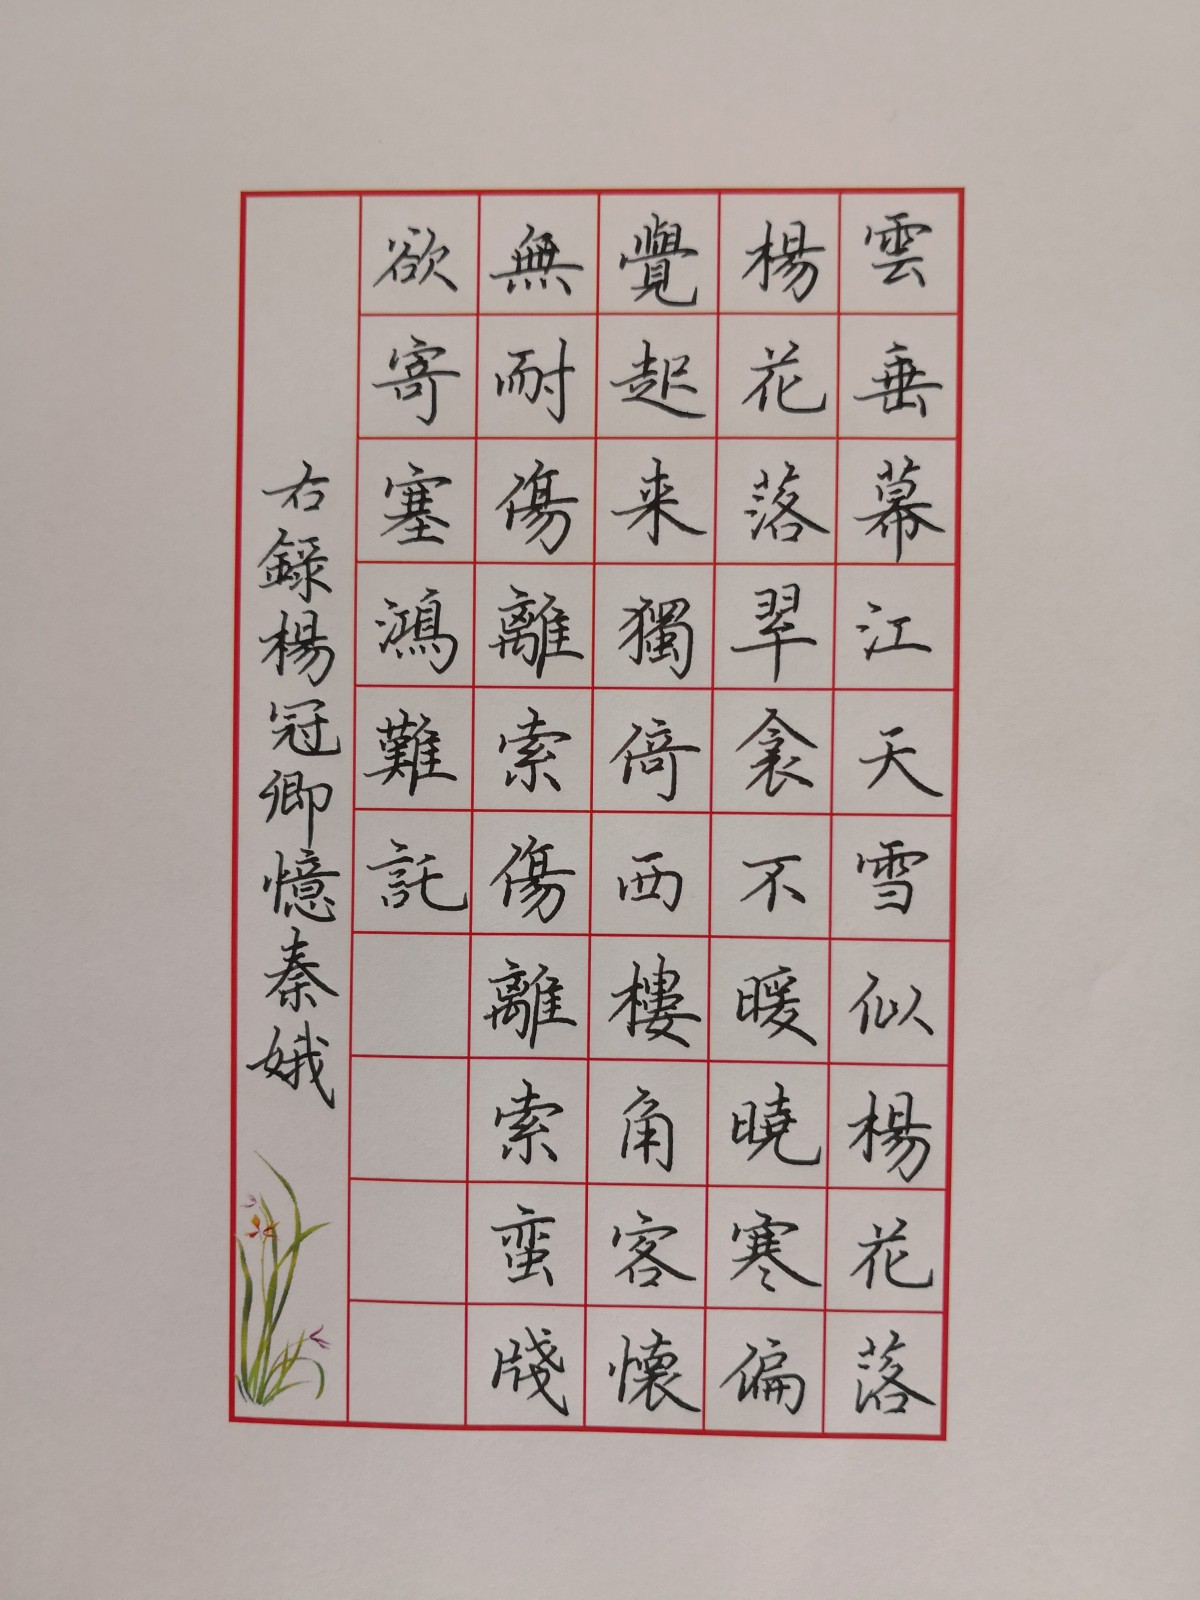 雲垂幕江天雪似楊花落
楊花落翠衾不暖曉寒偏
覺起来獨倚西樓角客懷
無耐傷離索傷離索蛮牋
欲寄塞鴻難託
右録楊冠卿憶秦娥